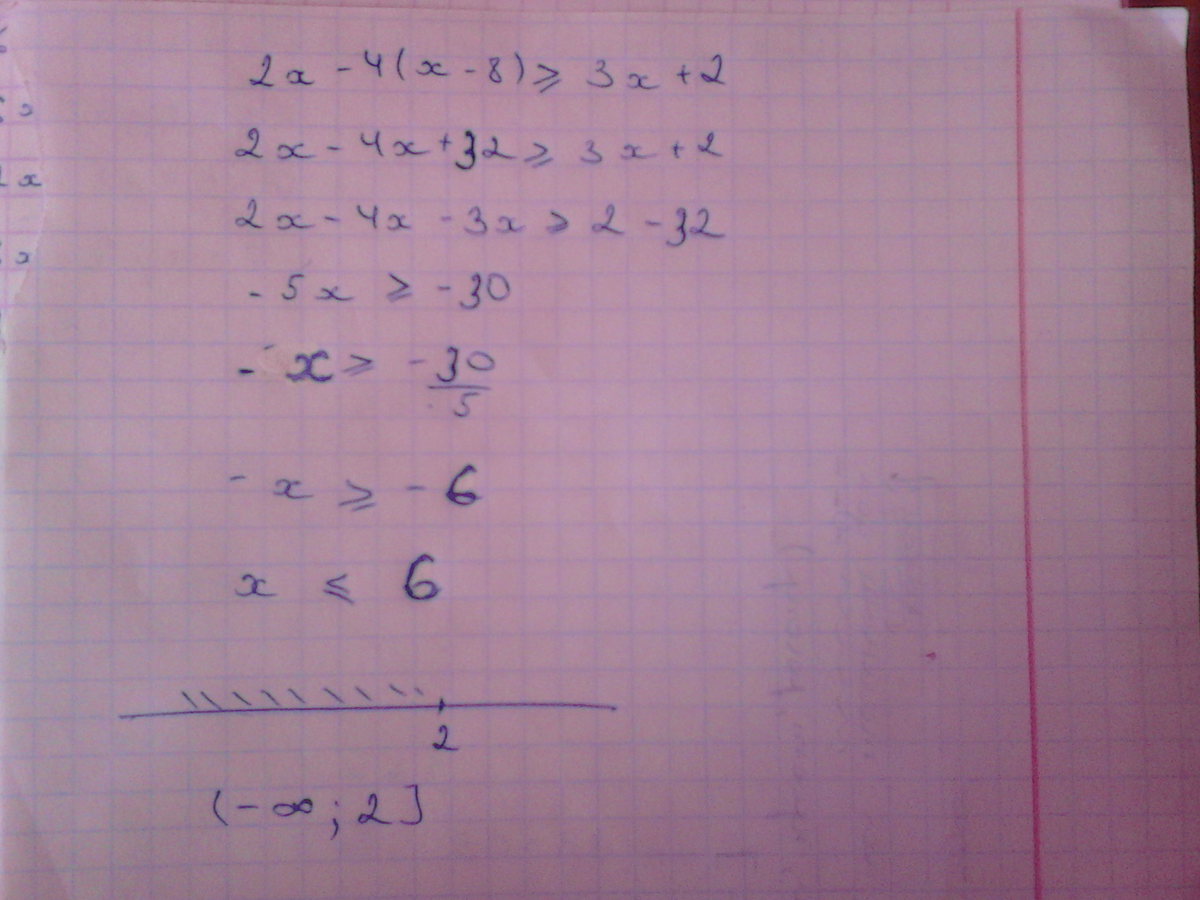 2x - 4(x - 8) ⩾ 3x + 2
2x - 4x + 32 ⩾ 3x + 2
2x - 4x - 3x ⩾ 2 - 32
- 5x ⩾ - 30
- x ⩾ - 30/5
- x ⩾ - 6
x ⩽ 6
2
(- ∞ ; 2]